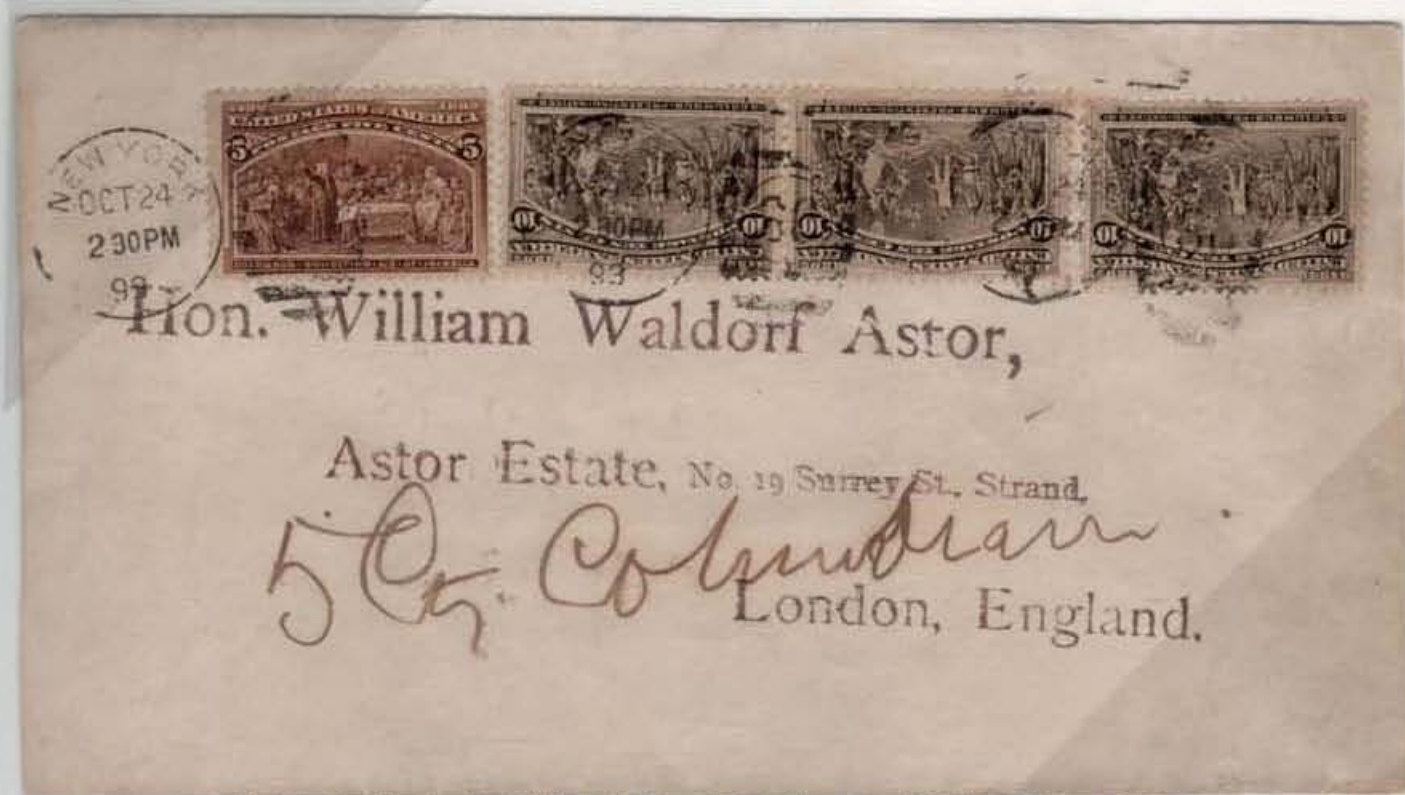 NEW YORK
OCT 24
2 30PM
93
UNITED STATES OF AMERICA
5 5
10 10
10 10
10 10
30PM
93
Hon. William Waldorf Astor,
Astor Estate, No. 19 Surrey St., Strand,
5 Columbian
London, England.